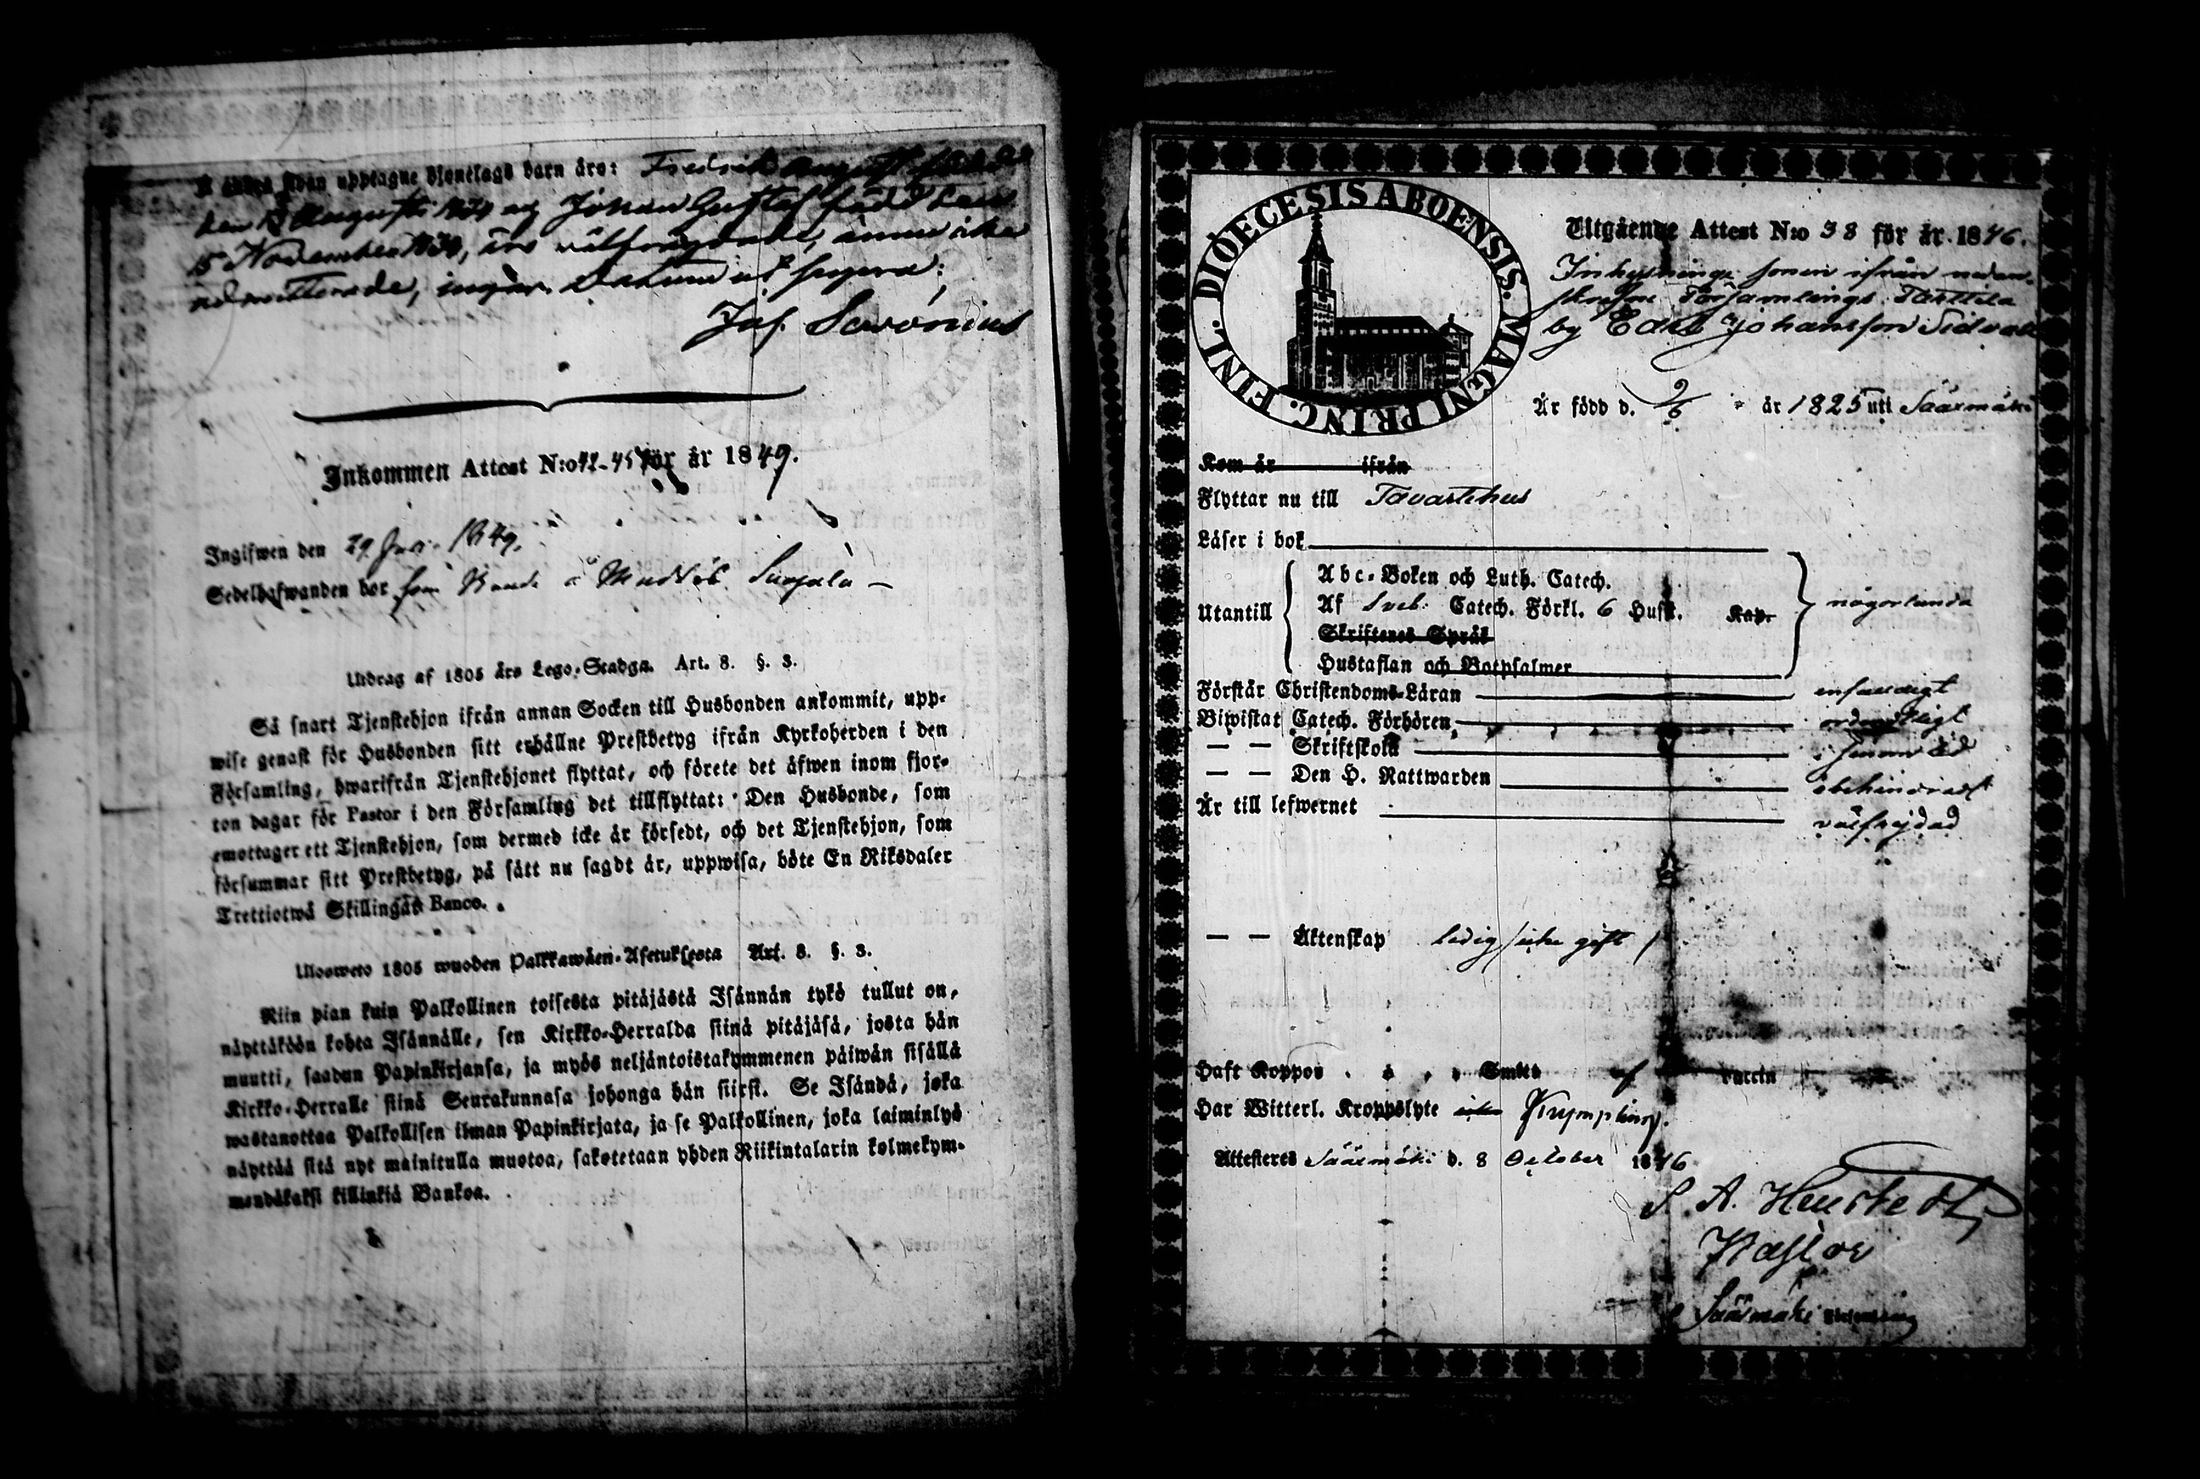 å andra sidan upptagne hjonelags barn äro: Fredrik August född
den 13 Augusti 1834 og Johan Gustaf född den
15 November 1839, äro välfrägdade, ännu icke
admitterade, ingår. Datum ut supra;
Jos. Savonius
Inkommen Attest N:o 42-45 för år 1849.
Ingifwen den 29 Juni 1849.
Sedelhafwanden bor som Bonde å Suojala —
Utdrag af 1805 års Lego-Stadga. Art. 8. §. 3.
Så snart Tjenstehjon ifrån annan Socken till Husbonden ankommit, upp-
wise genast för Husbonden sitt erhållne Prestbetyg ifrån Kyrkoherden i den
Församling, hwarifrån Tjenstehjonet flyttat, och förete det äfwen inom fjor-
ton dagar för Pastor i den Församling det tillflyttat: Den Husbonde, som
emottager ett Tjenstehjon, som dermed icke är försedt, och det Tjenstehjon, som
försummar sitt Prestbetyg, på sätt nu sagdt är, uppwisa, böte En Riksdaler
Trettiotwå Skillingar Banco.
Ulosweto 1805 wuoden Palkkawäen-Asetuksesta Art. 8. §. 3.
Niin pian kuin Palkollinen toisesta pitäjästä Isännän tykö tullut on,
näyttäköön kohta Isännälle, sen Kirkko-Herralda siinä pitäjäsä, josta hän
muutti, saadun Papinkirjansa, ja myös neljäntoistakymmenen päiwän sisällä
Kirkko-Herralle siinä Seurakunnasa johonga hän siirst. Se Isändä, joka
wastanottaa Palkollisen ilman Papinkirjata, ja se Palkollinen, joka laiminlyö
näyttää sitä nyt mainitulla muotoa, sakotetaan yhden Riikintalarin kolmekym-
mendäkaksi killinkiä Bankoa.
DIOECESIS ABOENSIS. MAGNI PRINC. FINL.
Utgående Attest N:o 38 för år 1846.
Inhysings sonen ifrån nedan-
skrefne Församlings Tarttila
by Edla Johansson Sidvall
Är född d. 9/6 år 1825 uti Sääxmäki
Kom år ifrån
Flyttar nu till Tavastehus
Läser i bok
Utantill
Abc-Boken och Luth. Catech.
Af Sveb. Catech. Förkl. 6 Hufst. Kap. någorlunda
Skriftenes Språk
Hustaflan och Botpsalmer
Förstår Christendoms-Läran enfaldigt
Biwistat Catech. Förhören, ordentligt
— — Skriftskola i sinom tid
— — Den H. Nattwarden obehindradt
Är till lefwernet välfrejdad
— — Äktenskap ledig /icke gift/
Haft Koppor Smitta af vaccin
Har Witterl. Kroppslyte icke Krympling.
Attesteres Sääxmäki d. 8 October 1846
S. A. Heurstedt
Pastor
Sääxmäki Församling